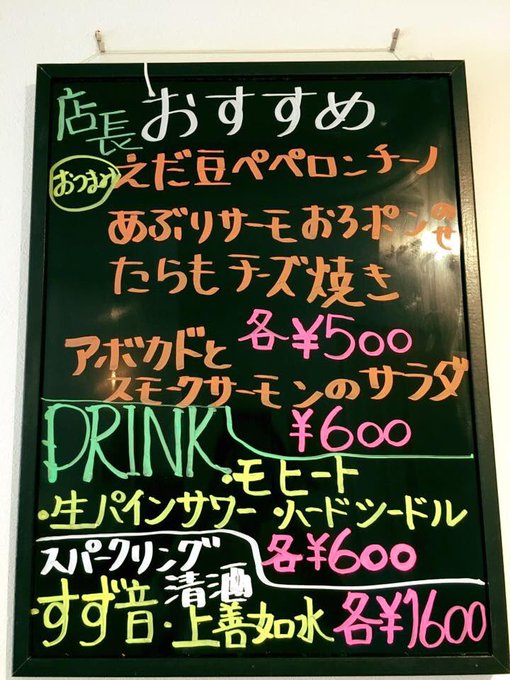 店長おすすめ
おつまみ
えだ豆ペペロンチーノ
あぶりサーモおろポンのせ
たらもチーズ焼き
各¥500
アボカドと
スモークサーモンのサラダ
¥600
DRINK
・モヒート
・生パインサワー・ハードシードル
各¥600
スパークリング
清酒
・すず音・上善如水 各¥1600